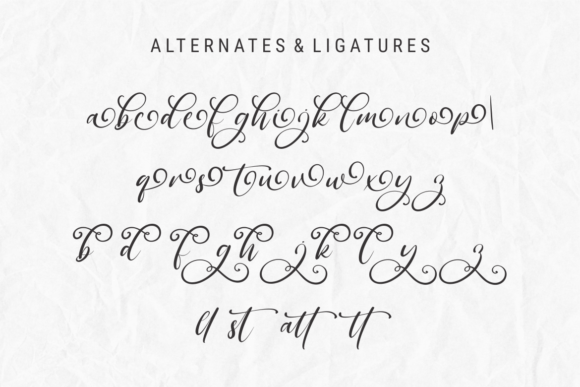 ALTERNATES & LIGATURES
abcdefghijklmnop|
qrstuvwxyz
b d f g h j k l y z
ll st att tt